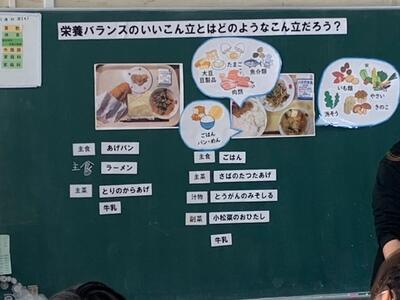 栄養バランスのいいこん立とはどのようなこん立だろう？
大豆
豆製品
たまご
魚介類
肉類
ごはん
パン・めん
いも類
やさい
きのこ
海そう
主食 あげパン
主食 ラーメン
主菜 とりのからあげ
牛乳
主食 ごはん
主菜 さばのたつたあげ
汁物 とうがんのみそしる
副菜 小松菜のおひたし
牛乳